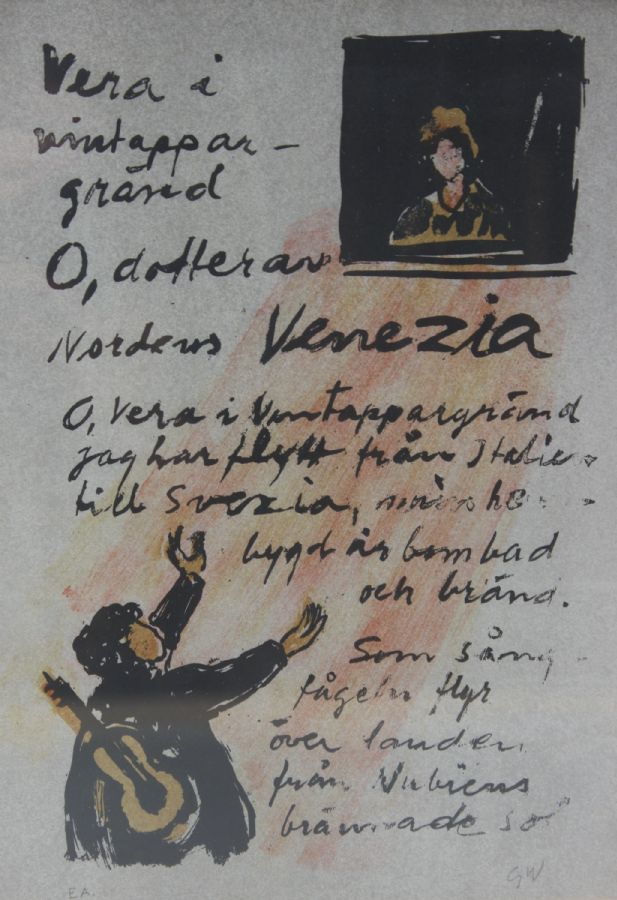 Vera i
vintappar-
gränd
O, dotter av
Nordens Venezia
O, Vera i Vintappargränd
jag har flytt från Italien
till Svezia, min he
bygd är bombad
och bränd.
Som sång
fågeln flyr
över landen
från Nubiens
brännade sol
E.A.
GW